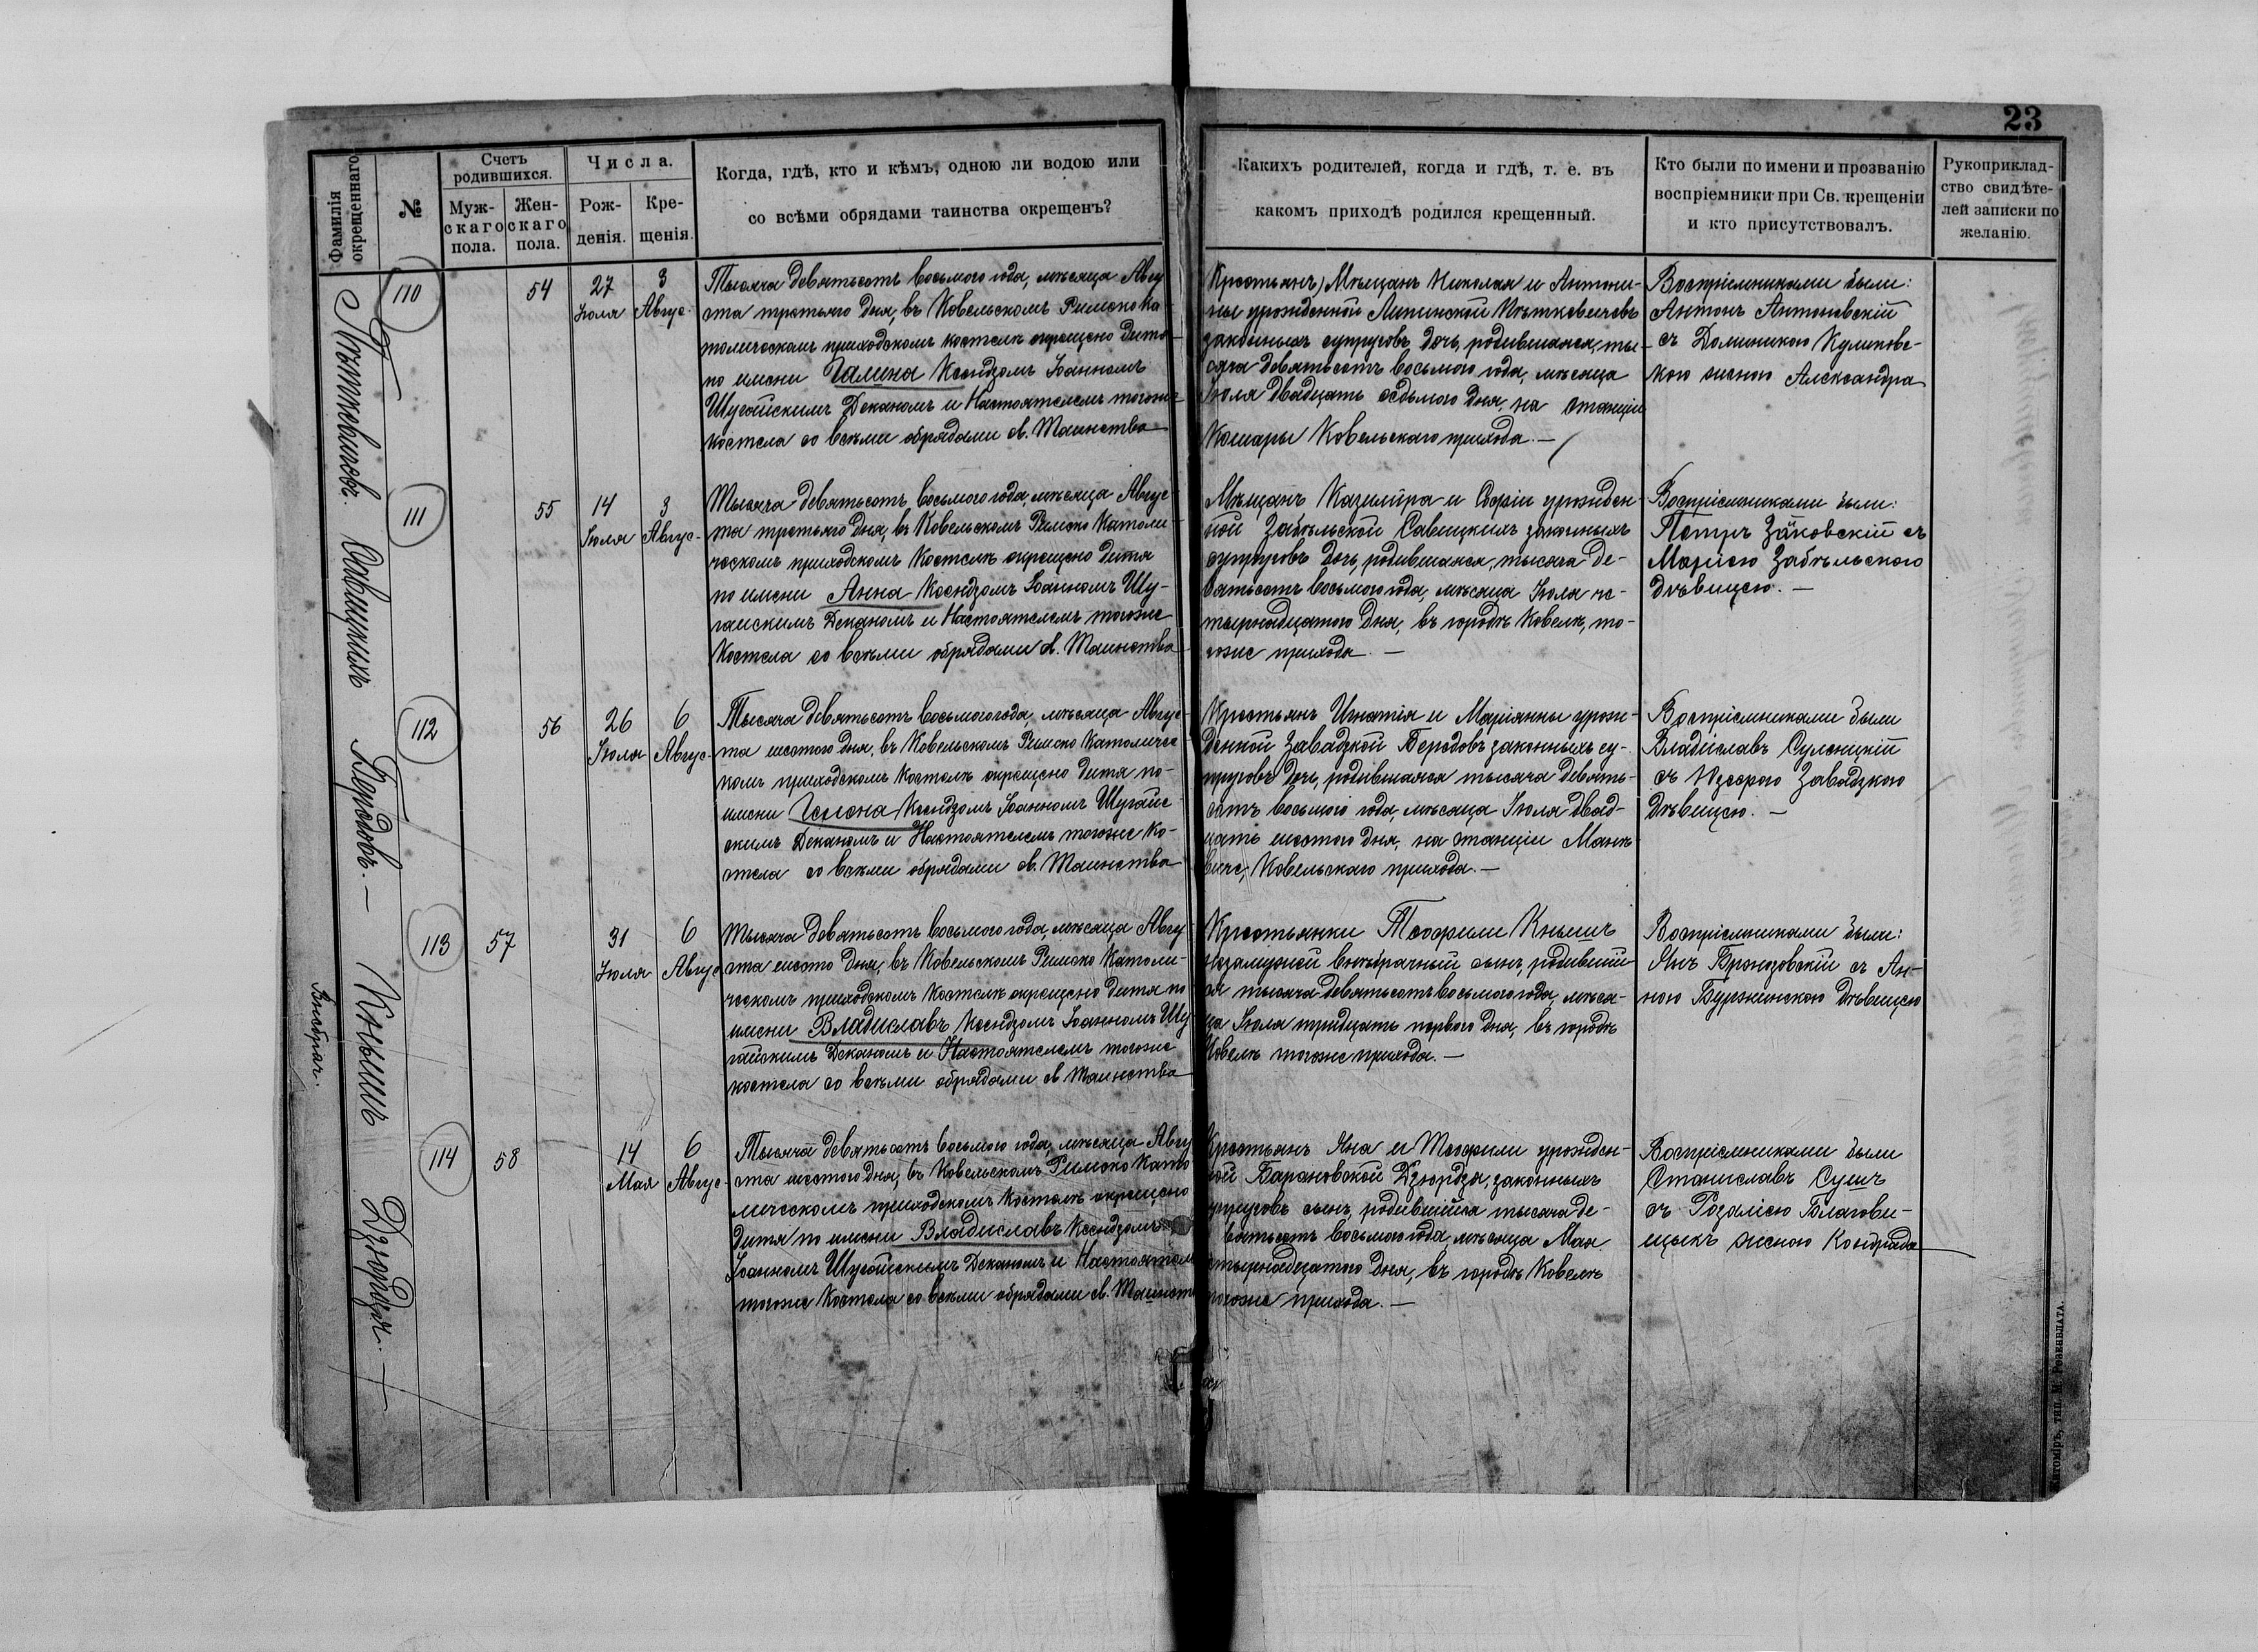 23
Фамилія окрещеннаго
№
Счетъ родившихся.
Мужскаго пола.
Женскаго пола.
Числа.
Рожденія.
Крещенія.
Когда, гдѣ, кто и кѣмъ, одною ли водою или
со всѣми обрядами таинства окрещенъ?
Какихъ родителей, когда и гдѣ, т. е. въ
какомъ приходѣ родился крещенный.
Кто были по имени и прозванію
воспріемники при Св. крещеніи
и кто присутствовалъ.
Рукоприклад-
ство свидѣте-
лей записки по
желанію.
110
54
27
Іюля
3
Авгус.
Тысяча девятьсотъ восьмого года, мѣсяца Авгу
ста третьяго дня, въ Ковельскомъ Римско Ка
толическомъ приходскомъ костелѣ окрещено дитя
по имени Галина Ксендзомъ Іоанномъ
Шугайскимъ Деканомъ и Настоятелемъ тогоже
костела со всѣми обрядами св. Таинства
Крестьянъ) Мѣщанъ Николая и Антони-
ны урожденной Липинской
законныхъ супруговъ дочь, родившаяся, ты-
сяча девятьсотъ восьмого года, мѣсяца
Іюля двадцать седьмого дня, на станціи
Кошары Ковельскаго прихода. —
Воспріемниками были:
Антонъ Антоновскій
съ Доминикою Куликовс-
кою женою Александра
111
55
14
Іюля
3
Авгус-
Савицкихъ
Тысяча девятьсотъ восьмого года, мѣсяца Авгус-
та третьяго дня, въ Ковельскомъ Римско Католи-
ческомъ приходскомъ Костелѣ окрещено дитя
по имени Анна Ксендзомъ Іоанномъ Шу-
гайскимъ Деканомъ и Настоятелемъ тогоже
Костела со всѣми обрядами св. Таинства
Мѣщанъ Казиміра и Софіи урожден-
ной Забѣльской Савицкихъ законныхъ
супруговъ дочь, родившаяся, тысяча де-
вятьсотъ восьмого года, мѣсяца Іюля че-
тырнадцатого дня, въ городѣ Ковелѣ, то-
гоже прихода. —
Воспріемниками были:
Петръ Заковскій съ
Маріею Забѣльского
дѣвицею. —
112
56
26
Іюля
6
Авгус.
Тысяча девятьсотъ восьмого года, мѣсяца Авгус-
та шестого дня, въ Ковельскомъ Римско Католичес-
комъ приходскомъ Костелѣ окрещено дитя по-
имени Гелена Ксендзомъ Іоанномъ Шугайс-
скимъ Деканомъ и Настоятелемъ тогоже Ко-
стела со всѣми обрядами св. Таинства
Крестьянъ Игнатія и Маріанны урож-
денной Завадзкой законныхъ су-
пруговъ дочь, родившаяся тысяча девять-
сотъ восьмого года, мѣсяца Іюля двад-
цать шестого дня, на станціи
Ковельскаго прихода. —
Воспріемниками были
Владиславъ Суленцкій
съ Завадзкою
дѣвицею. —
113
57
31
Іюля
6
Авгус
Кнышъ
Внѣбрач.
Тысяча девятьсотъ восьмого года, мѣсяца Авгу-
ста шесто дня, въ Ковельскомъ Римско Католи-
ческомъ приходскомъ Костелѣ окрещено дитя по
имени Владиславъ Ксендзомъ Іоанномъ Шу-
гайскимъ Деканомъ и Настоятелемъ тогоже
костела со всѣми обрядами св Таинства
Крестьянки Теофили Кнышъ
незамужней внѣбрачный сынъ, родившій
ся тысяча девятьсотъ восьмого года, мѣся-
ца Іюля тридцать перваго дня, въ городѣ
Ковелѣ тогоже прихода. —
Воспріемниками были:
Янъ Бронзовскій съ Ан-
ною Буржинскою дѣвицею
114
58
14
Мая
6
Авгус-
Дзюрдзя. —
Тысяча девятьсотъ восьмого года, мѣсяца Авгу
ста шестого дня, въ Ковельскомъ Римско Като
лическомъ приходскомъ Костелѣ окрещено
дитя по имени Владиславъ Ксендзомъ
Іоанномъ Шугайскимъ Деканомъ и Настоятелем
тогоже Костела со всѣми обрядами св. Таинств
Крестьянъ Яна и Теофили урожден-
ной Барановской Дзюрдзя, законныхъ
супруговъ сынъ, родившійся тысяча де-
вятьсотъ восьмого года, мѣсяца Мая
четырнадцатого дня, въ городѣ Ковелѣ
тогоже прихода. —
Воспріемниками были
Станиславъ Сушъ
съ Розаліею Благови-
щыкъ женою Кондрада